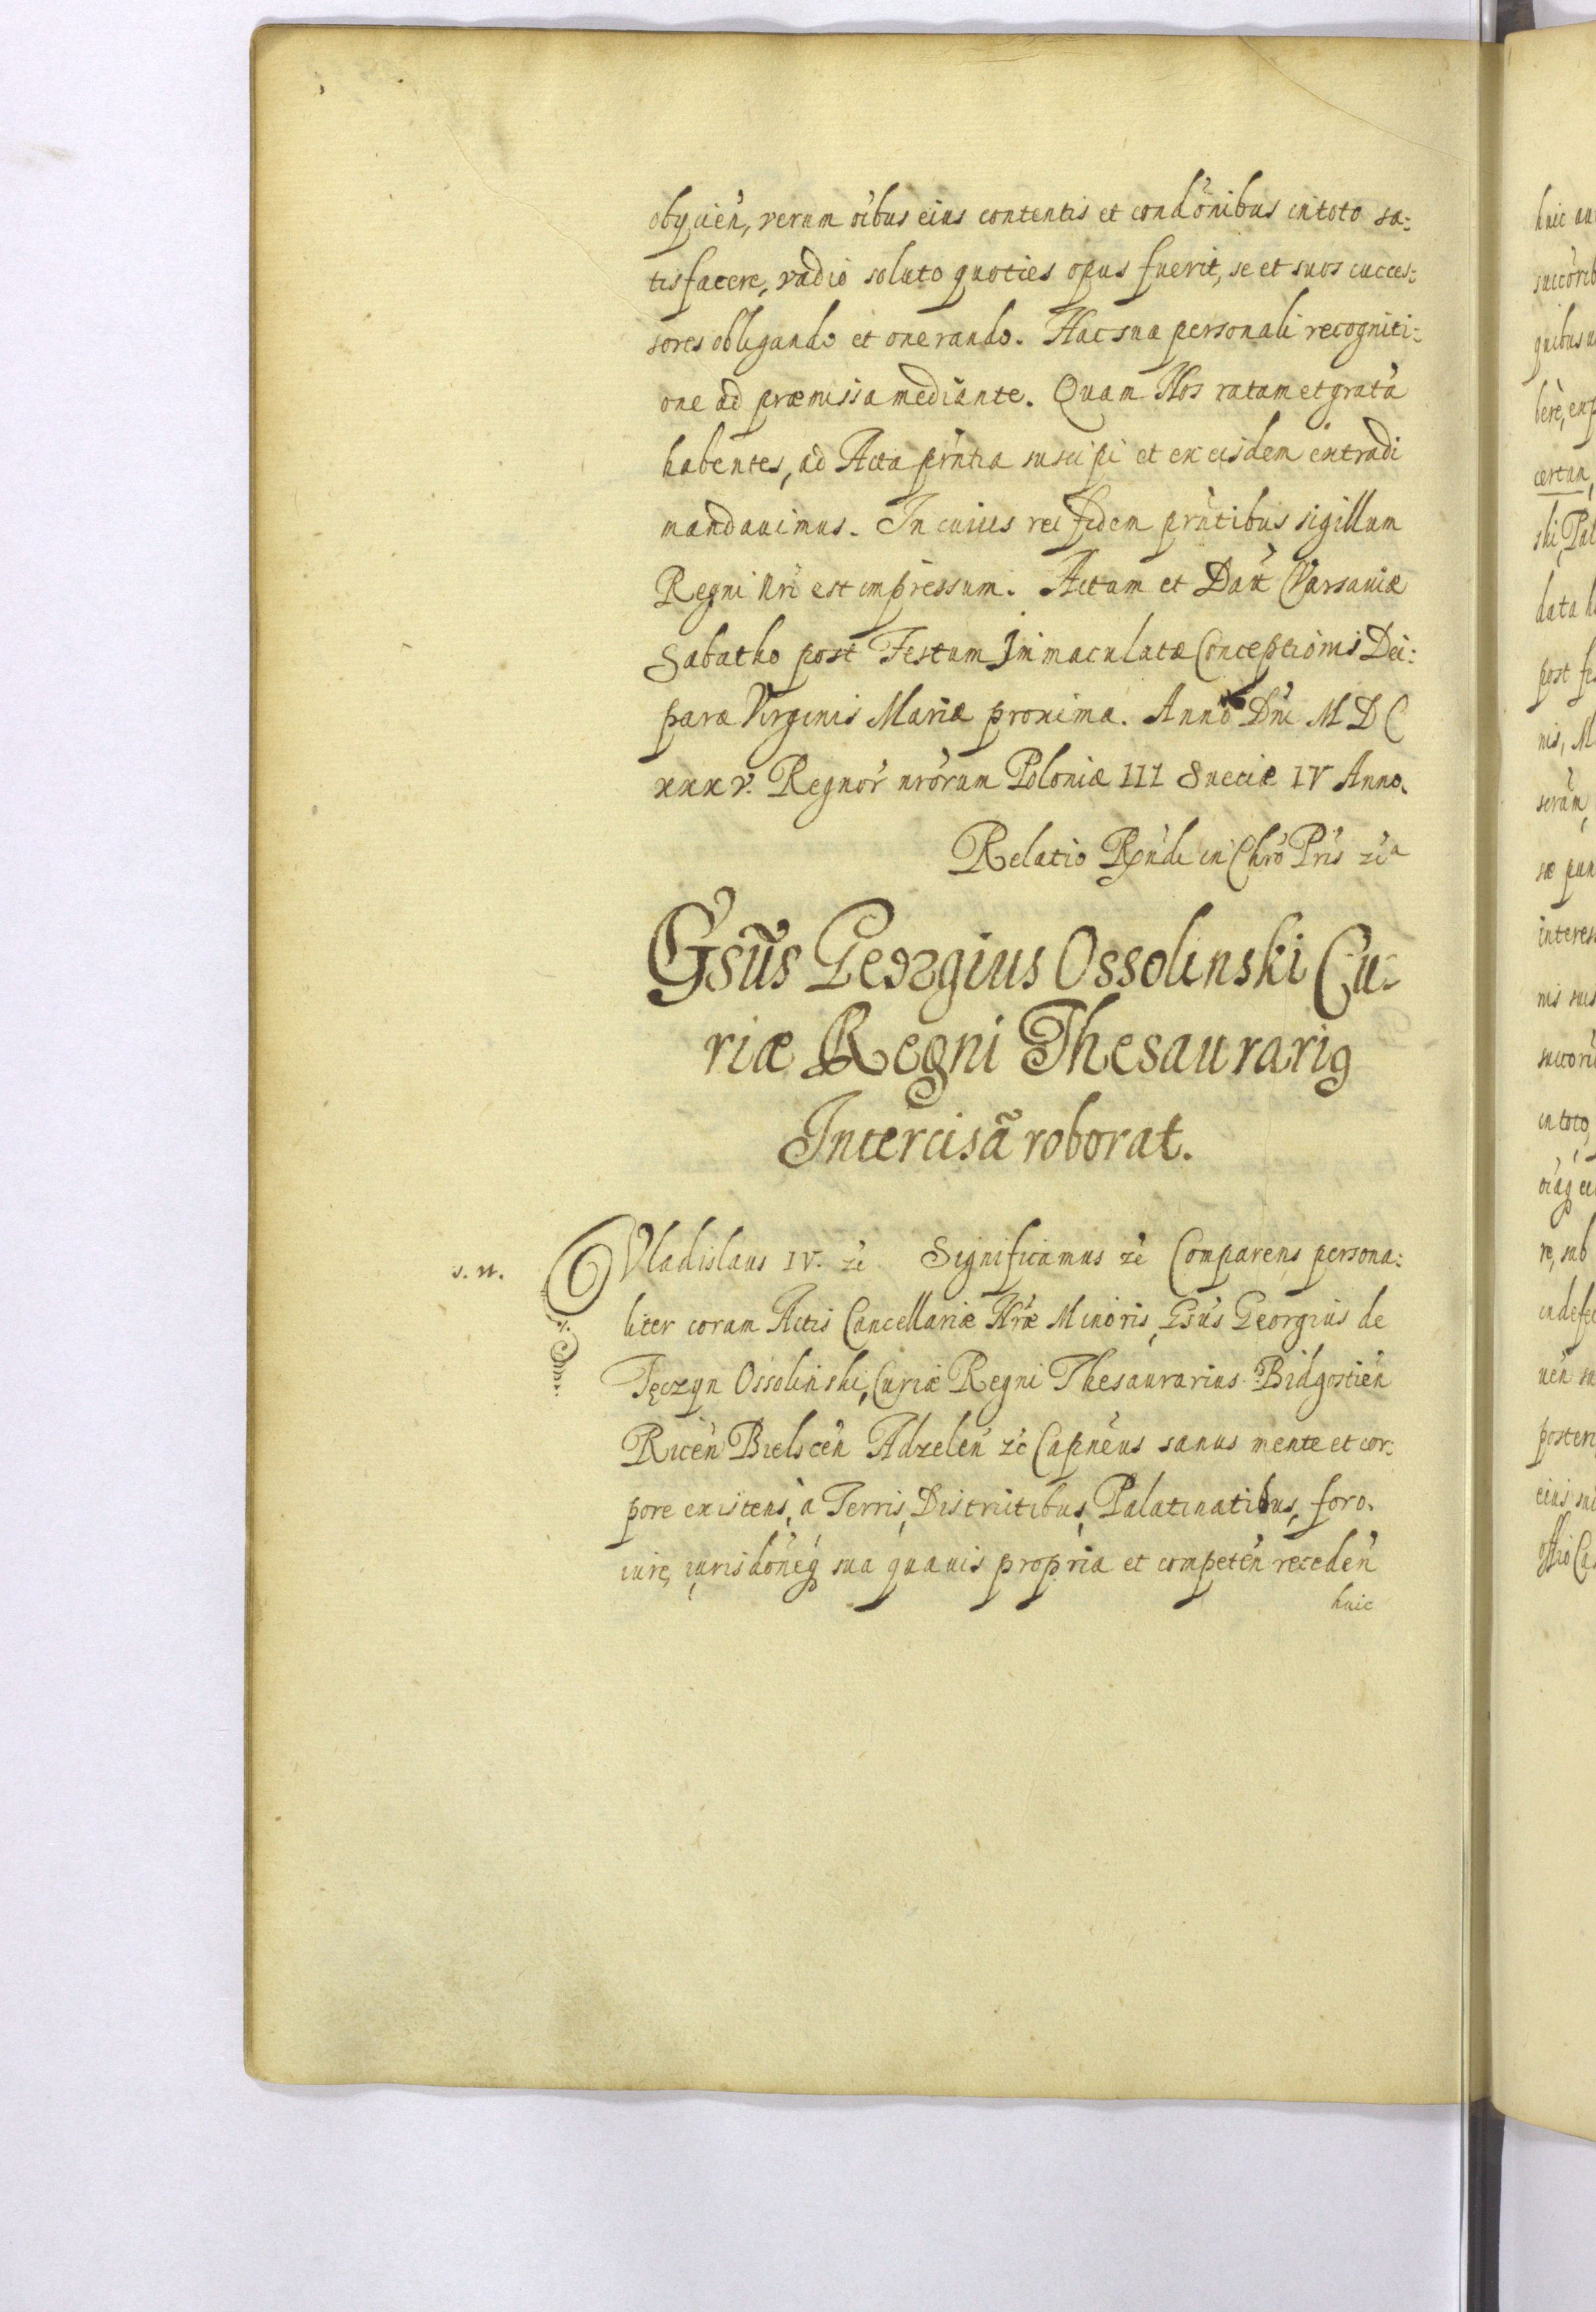 obijcień, verum oib́us eius contentis et condónibus in toto sa:
tisfacere, vadio soluto quoties opus fuerit, se et suos succes:
sores obligando et onerando. Hac sua personali recogniti:
one ad præmissa mediante. Quam Nos ratam et gratã
habentes, ad Acta prńtia suscipi et ex eisdem extradi
mandauimus. In cuius rei fidem prńtibus sigillum
Regni nri est impressum. Actum et Dat̃ Varsauiæ
Sabatho post Festum Immaculatæ Conceptionis Dei:
paræ Virginis Mariæ proxima. Anno Dńi M D C
xxx v. Regnor̃ nrórum Poloniæ III Sueciæ IV Anno.
Relatio Rńdi in Chrõ Pris zc̃a
Gsũs Georgius Ossolinski Cu:
riæ Regni Thesaurari9
Intercisã roborat.
s. n.
Vladislaus IV. zc̃ Significamus zc̃ Comparens persona:
liter coram Actis Cancellariæ Nr̃æ Minoris, Gsũs Georgius de
Tęczyn Ossolinski, Curiæ Regni Thesaurarius Bidgostień
Riceń Bielsceń Adzeleń zc̃ Capnẽus sanus mente et cor:
pore existens, à Terris, Districtibus, Palatinatibus, foro.
iure, iurisdónéq sua quauis propria et competeń recedeń
huic
huic
certan,
data
post
nis, M
interes
in toto,
re, sub